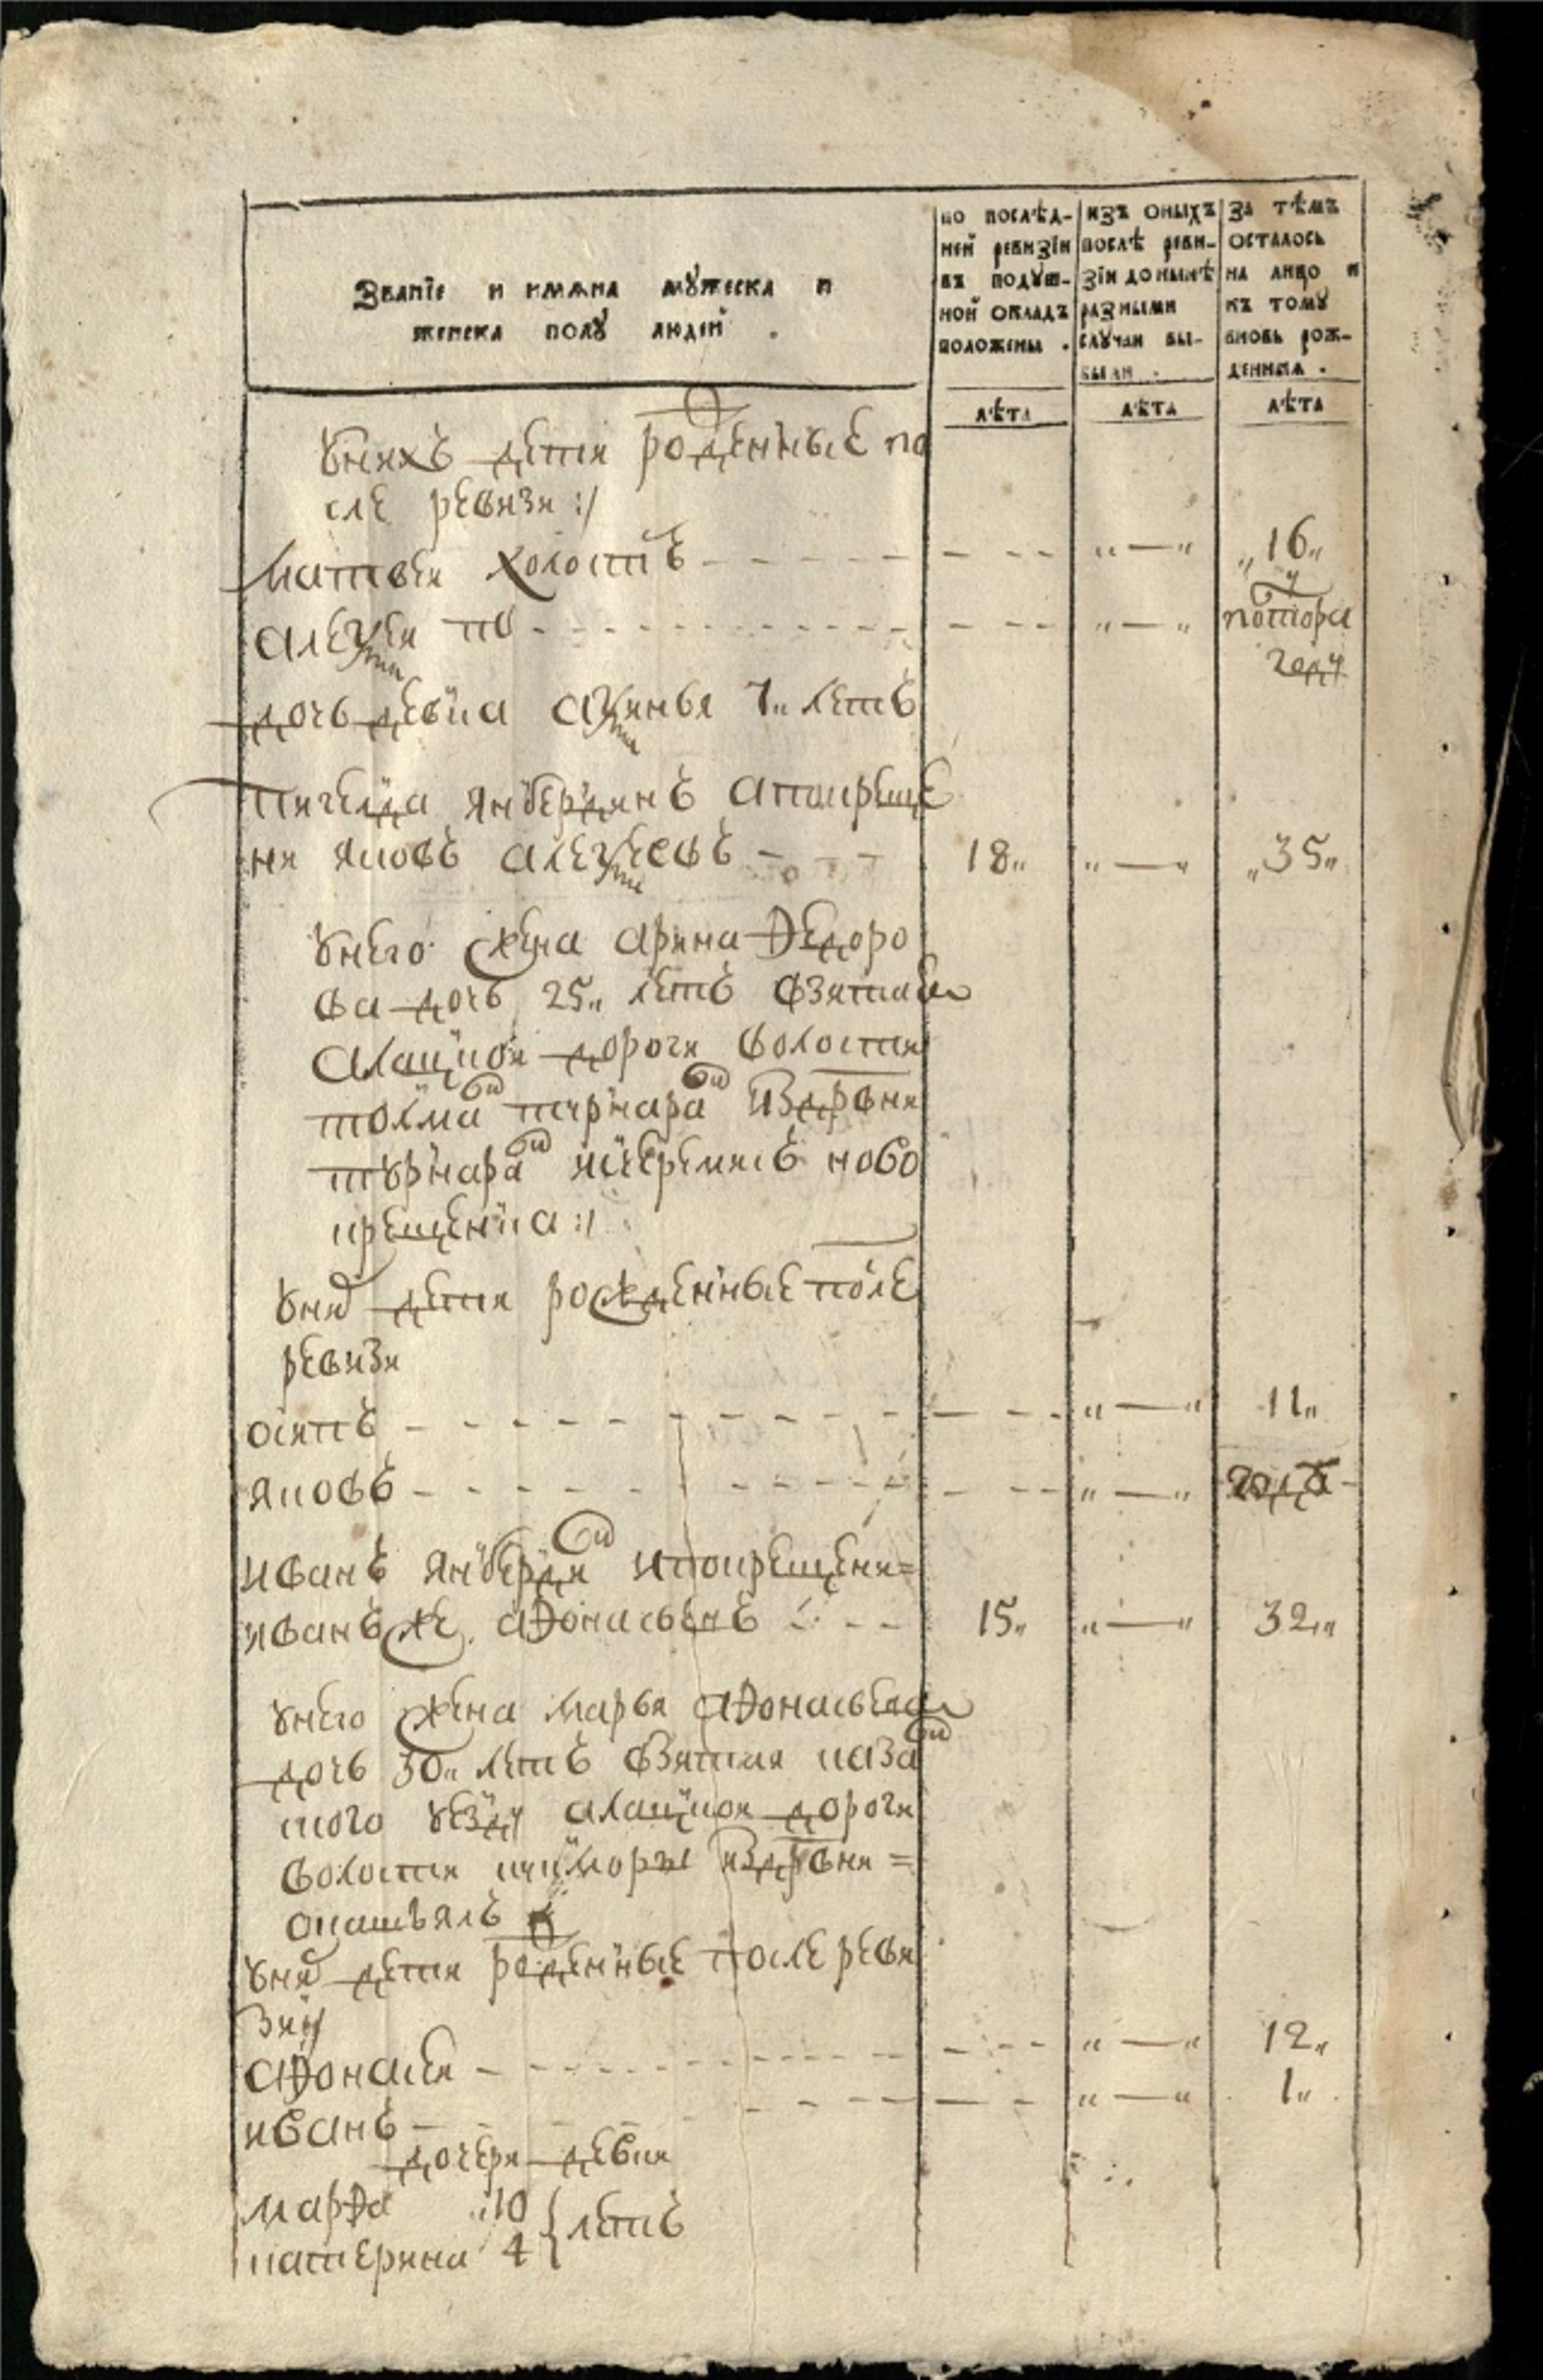 Званїе и имѧна мꙋжеска и
женска полꙋ людей .
по послѣд-
ней ревизїи
въ подꙋш-
ной окладъ
положены .
изъ оныхъ
послѣ реви-
зїи до нынѣ
разными
слꙋчаи вы-
были .
За тѣмъ
осталось
на лицо и
къ томꙋ
вновь рож-
денныя .
лѣта лѣта лѣта
ꙋнихъ дети роденные по
сле ревизи :/
матвеи холостъ „ — „ „16„
алеѯеи по „ — „ полтора
годꙋ
дочь девка аѯинья 7„ летъ
янбердинъ апокреще
ни яковъ алеѯеевъ 18„ „ — „ „35„
ꙋнего жена арина Ѳедоро
ва дочь 25„ летъ взятая
алацкои дороги волости
издрвни
ичеремисъ ново
крещенка :/
ꙋней дети рожденные после
ревизи
осипъ „ — „ 11„
яковъ „ — „ года
иванъ янбердин ипокрещени=
иванъ же аѲонасьевъ 15„ „ — „ 32„
ꙋнего жена марья аѲонасьева
дочь 30„ летъ взятая каза
ского ꙋездꙋ алацкои дороги
волости издрвни =
ꙋней дети роденные после реви
зии
аѲонасеи „ — „ 12„
иванъ „ — „ 1„
дочери девки
марѲа „10 } летъ
катерина 4